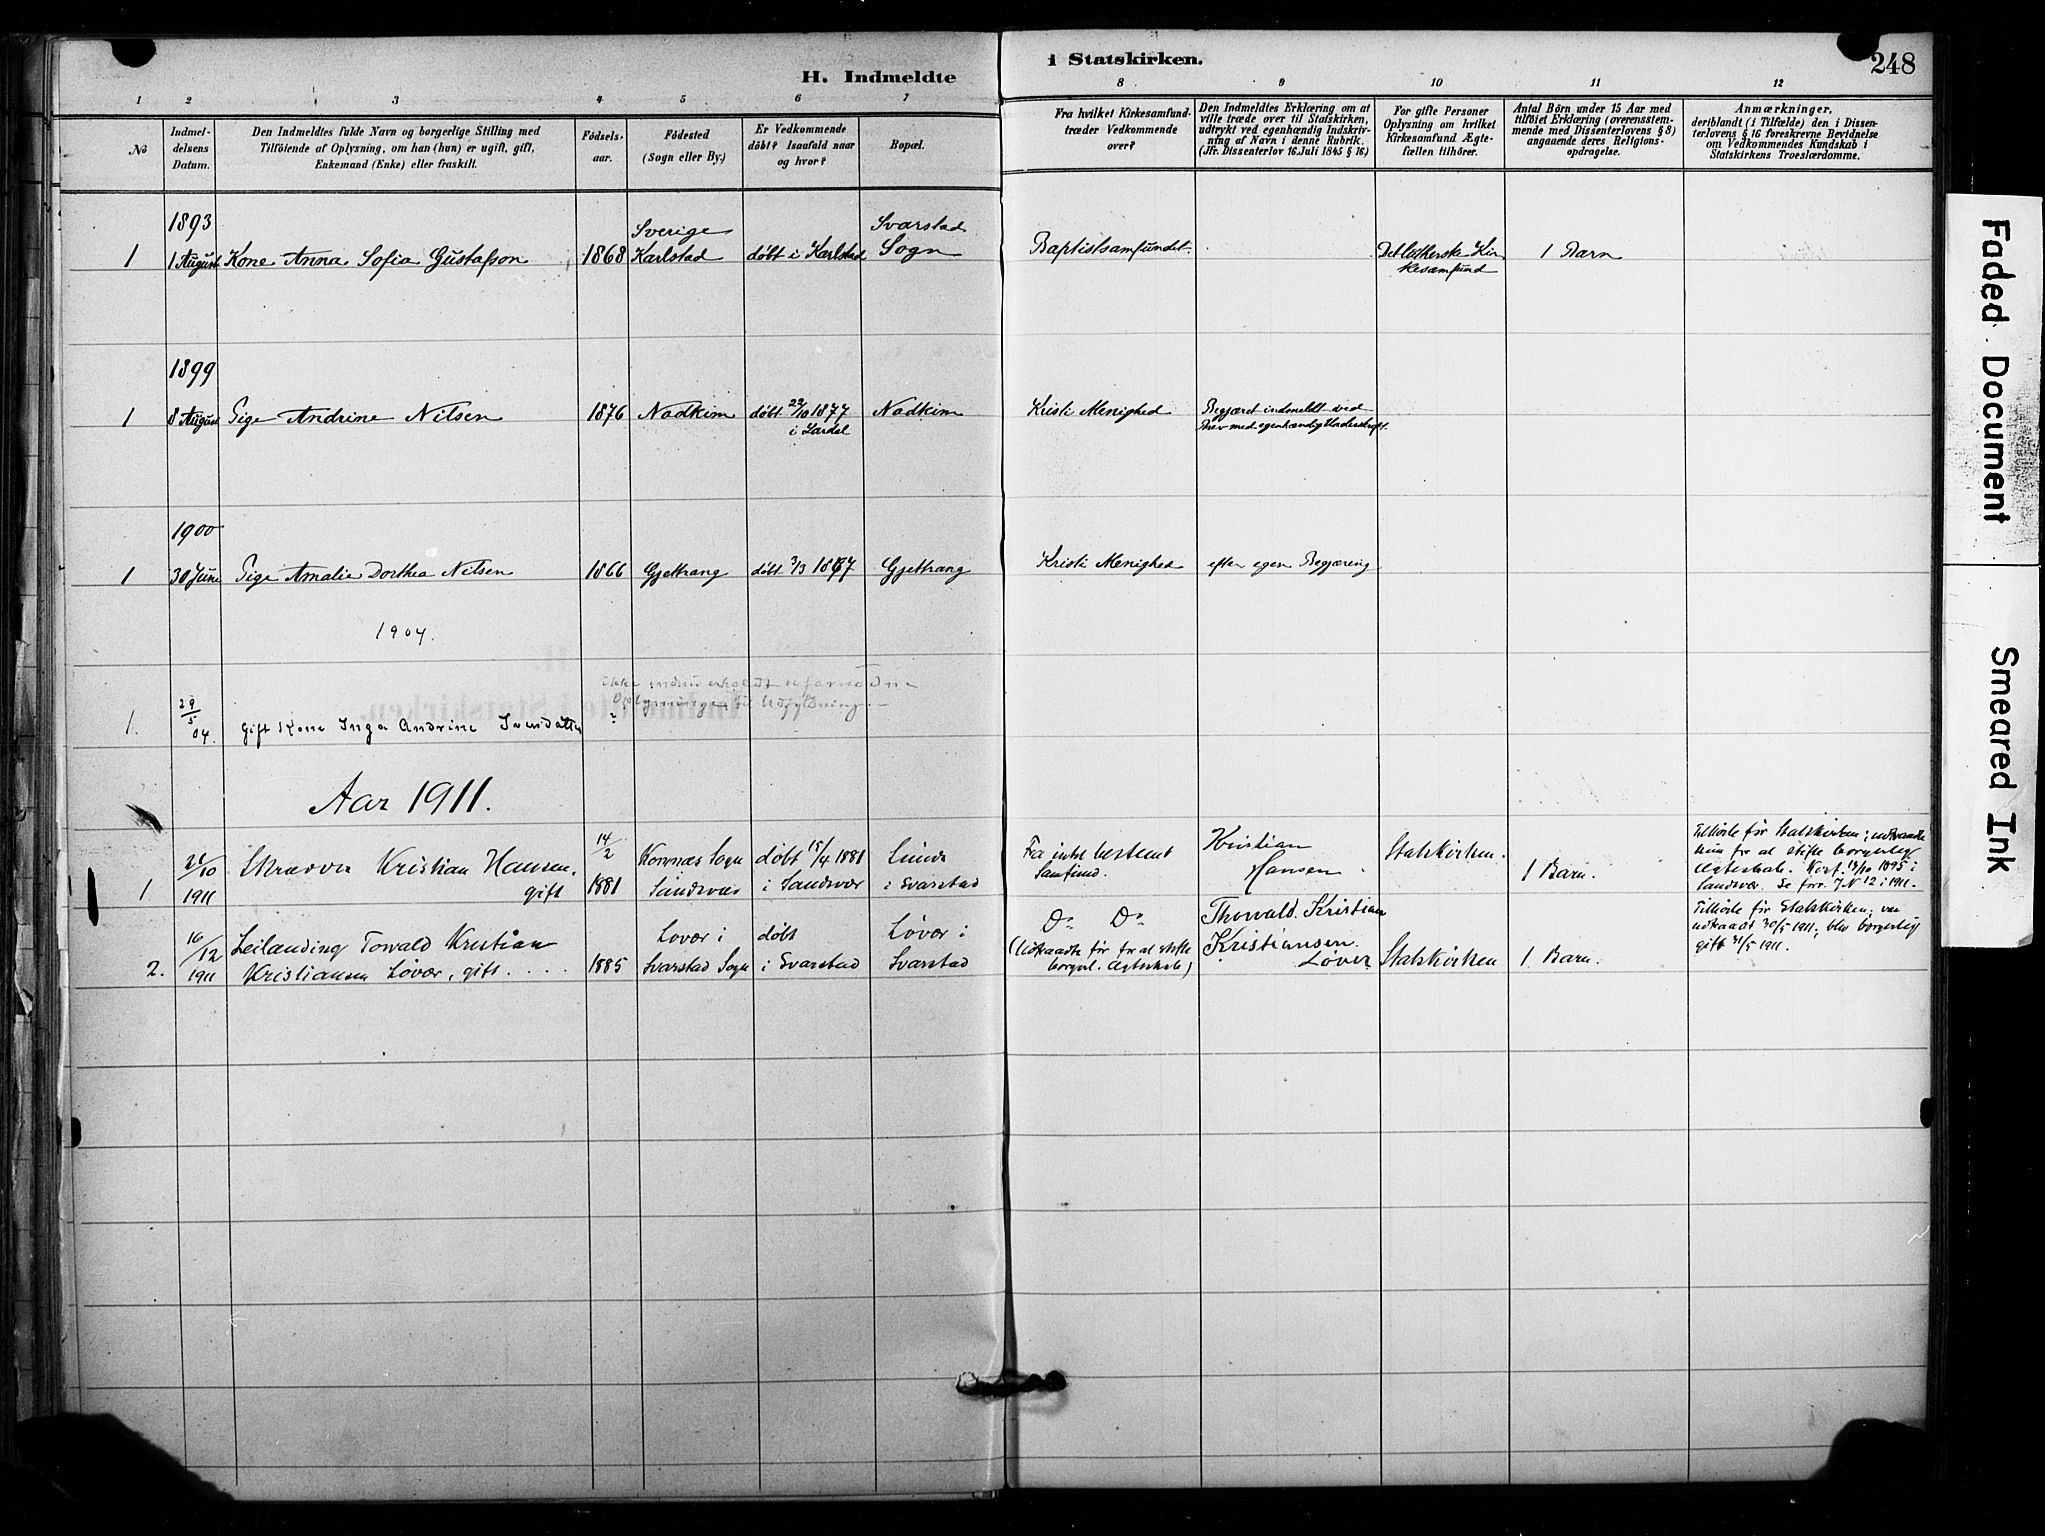 H. Indmeldte
i Statskirken.
248
1 2 3 4 5 6 7 8 9 10 11 12
No
Indmel-
delsens
Datum.
Den Indmeldtes fulde Navn og borgerlige Stilling med
Tilföiende af Oplysning, om han (hun) er ugift, gift,
Enkemand (Enke) eller fraskilt.
Födsels-
aar.
Födested
(Sogn eller By.)
Er Vedkommende
döbt? Isaafald naar
og hvor?
Bopæl.
Fra hvilket Kirkesamfund-
træder Vedkommende
over?
Den Indmeldtes Erklæring om at
ville træde over til Statskirken,
udtrykt ved egenhændig Indskriv-
ning af Navn i denne Rubrik.
(Jfr. Dissenterlov 16. Juli 1845 § 16)
For gifte Personer
Oplysning om hvilket
Kirkesamfund Ægte-
fællen tilhörer.
Antal Börn under 15 Aar med
tilföiet Erklæring (overensstem-
mende med Dissenterlovens § 8)
angaaende deres Religions-
opdragelse.
Anmærkninger,
deriblandt (i Tilfælde) den i Dissen-
terlovens § 16 foreskrevne Bevidnelse
om Vedkommendes Kundskab i
Statskirkens Troeslærdomme.
1893
Sverige
Svarstad
1 1 August Kone Anna Sofia Gustafson 1868 Karlstad döbt i Karlstad Sogn Baptistsamfundet. Det lutherske Kir 1 Barn
kesamfund
1899
1 8 August Pige Andrine Nilsen 1876 Nadkim döbt 22/10 1877 Nadkim Kristi Menighed Begjæret indmeldt ved
i Lardal
Brev med egenhændig Underskrift.
1900
1 30 Juni Pige Amalie Dorthea Nilsen 1866 Gjettrang döbt 3/3 1867 Gjettrang Kristi Menighed efter egen Begjæring
1904.
ikke endnu erholdt
Oplysninger til Udfyldning.
1. 29/5 04. Gift Kone Inga Andrine ?
Aar 1911.
21/10 Skrædder Kristian Hansen, 14/2 Komnæs Sogn döbt 15/4 1881 Lunde Fra intet bestemt Kristian Statskirken.
1 1911 gift 1881 Sandsvær i Sandsvær i Svarstad Samfund. Hansen 1 Barn.
Tilhörte för Statskirken; udtraadte
kun for at stifte borgerlig
Ægteskab. Konf. 13/10 1895 i
Sandsvær. Se forr. J N 12 i 1911.
16/12 Leilænding Torvald Kristian Lövær i döbt Lövær i Do Do Thorvald Kristian
2. 1911 Kristiansen Lövær, gift. 1885 Svarstad Sogn i Svarstad Svarstad (Udtraadte för for at stifte Kristiansen
borgerl. Ægteskab) Löver Statskirken 1 Barn.
Tilhörte för Statskirken; var
udtraadt 30/5 1911; blev borgerlig
gift 31/5 1911.
Faded Document
Smeared Ink